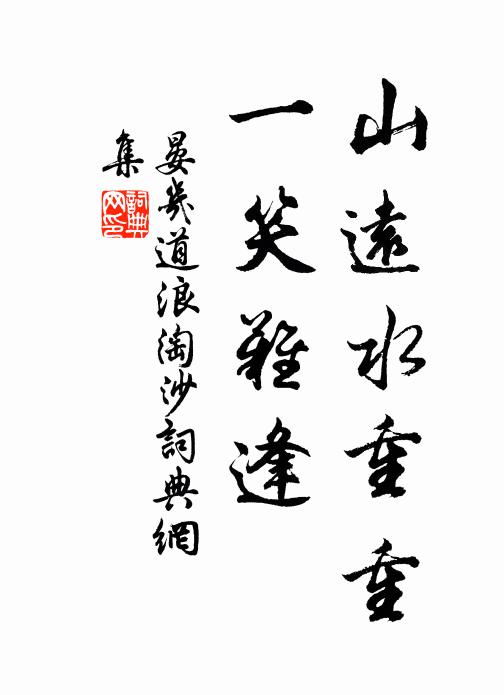 山遠水重重
一笑難逢
晏幾道浪淘沙詞典網
集
詞典网印